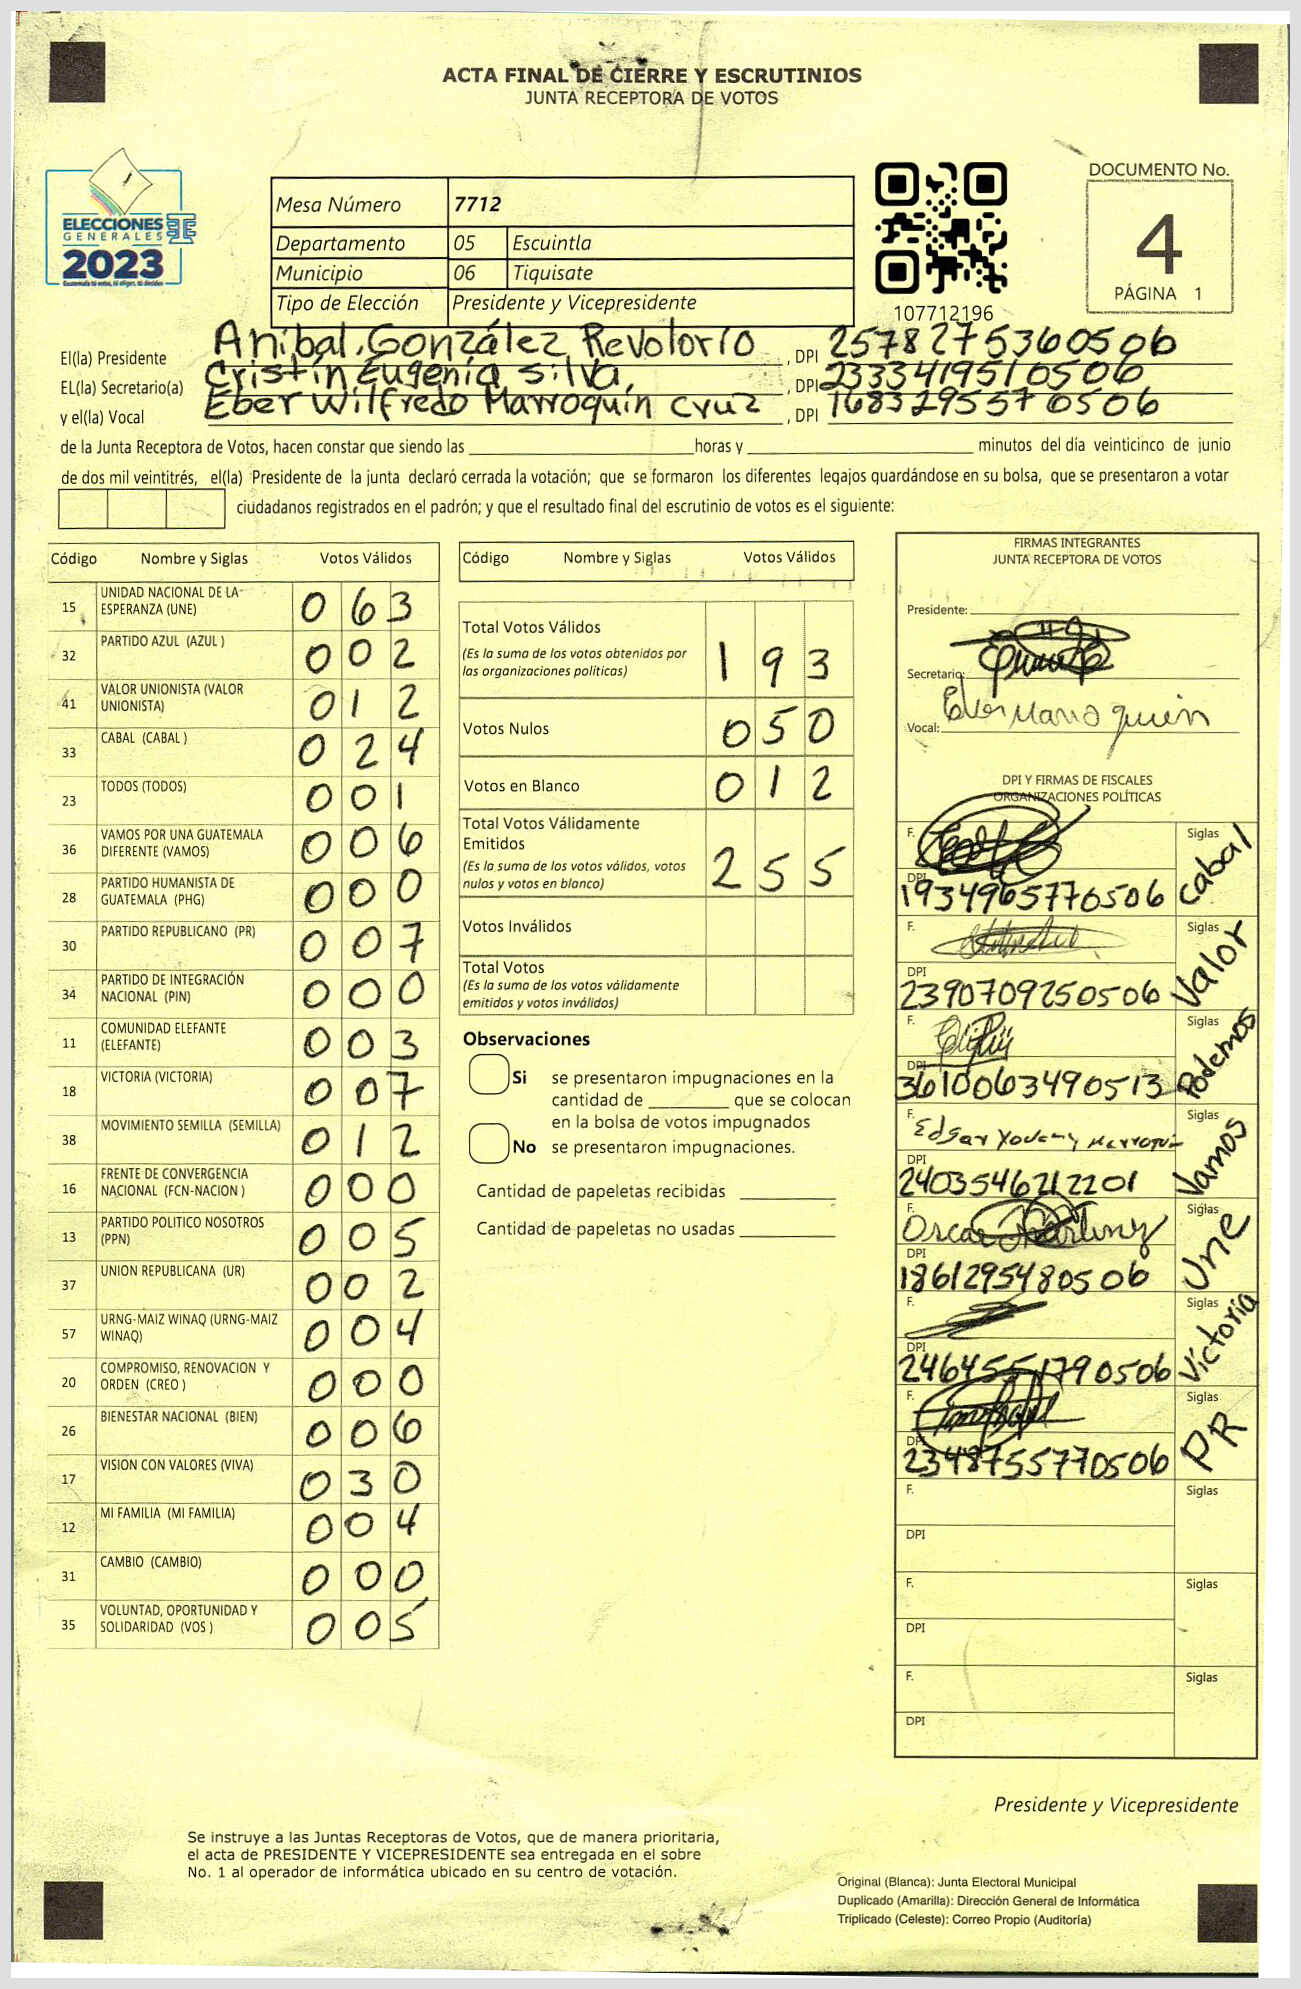 ACTA FINAL DE CIERRE Y ESCRUTINIOS
JUNTA RECEPTORA DE VOTOS
ELECCIONES
GENERALES
2023
Guatemala tú votas, tú eliges, tú decides
Mesa Número 7712
Departamento 05 Escuintla
Municipio 06 Tiquisate
Tipo de Elección Presidente y Vicepresidente
107712196
DOCUMENTO No.
4
PÁGINA 1
El(la) Presidente Aníbal González Revolorio, DPI 2578275360506
EL(la) Secretario(a) Cristin Eugenia Silva, DPI 2333419510506
y el(la) Vocal Eber Wilfredo Marroquín Cruz, DPI 1683295570506
de la Junta Receptora de Votos, hacen constar que siendo las ____ horas y ____ minutos del día veinticinco de junio
de dos mil veintitrés, el(la) Presidente de la junta declaró cerrada la votación; que se formaron los diferentes legajos guardándose en su bolsa, que se presentaron a votar
ciudadanos registrados en el padrón; y que el resultado final del escrutinio de votos es el siguiente:
Código Nombre y Siglas Votos Válidos
15 UNIDAD NACIONAL DE LA ESPERANZA (UNE) 063
32 PARTIDO AZUL (AZUL ) 002
41 VALOR UNIONISTA (VALOR UNIONISTA) 012
33 CABAL (CABAL ) 024
23 TODOS (TODOS) 001
36 VAMOS POR UNA GUATEMALA DIFERENTE (VAMOS) 006
28 PARTIDO HUMANISTA DE GUATEMALA (PHG) 000
30 PARTIDO REPUBLICANO (PR) 007
34 PARTIDO DE INTEGRACIÓN NACIONAL (PIN) 000
11 COMUNIDAD ELEFANTE (ELEFANTE) 003
18 VICTORIA (VICTORIA) 007
38 MOVIMIENTO SEMILLA (SEMILLA) 012
16 FRENTE DE CONVERGENCIA NACIONAL (FCN-NACION ) 000
13 PARTIDO POLITICO NOSOTROS (PPN) 005
37 UNION REPUBLICANA (UR) 002
57 URNG-MAIZ WINAQ (URNG-MAIZ WINAQ) 004
20 COMPROMISO, RENOVACION Y ORDEN (CREO ) 000
26 BIENESTAR NACIONAL (BIEN) 006
17 VISION CON VALORES (VIVA) 030
12 MI FAMILIA (MI FAMILIA) 004
31 CAMBIO (CAMBIO) 000
35 VOLUNTAD, OPORTUNIDAD Y SOLIDARIDAD (VOS ) 005
Código Nombre y Siglas Votos Válidos
Total Votos Válidos 193
(Es la suma de los votos obtenidos por
las organizaciones políticas)
Votos Nulos 050
Votos en Blanco 012
Total Votos Válidamente
Emitidos 255
(Es la suma de los votos válidos, votos
nulos y votos en blanco)
Votos Inválidos
Total Votos
(Es la suma de los votos válidamente
emitidos y votos inválidos)
Observaciones
Si se presentaron impugnaciones en la
cantidad de ____ que se colocan
en la bolsa de votos impugnados
No se presentaron impugnaciones.
Cantidad de papeletas recibidas ____
Cantidad de papeletas no usadas ____
FIRMAS INTEGRANTES
JUNTA RECEPTORA DE VOTOS
Presidente:
Secretario:
Vocal: Eber Marroquin
DPI Y FIRMAS DE FISCALES
ORGANIZACIONES POLÍTICAS
F. Siglas Cabal
DPI 1934965770506
F. Siglas Valor
DPI 2390709250506
F. Siglas Podemos
DPI 3610063490513
F. Edgar Yovany Marroquin Siglas Vamos
DPI 2403546212201
F. Oscar Martinez Siglas Une
DPI 1861295480506
F. Siglas Victoria
DPI 2464551790506
F. Siglas PR
DPI 2348755770506
F. Siglas
DPI
F. Siglas
DPI
F. Siglas
DPI
Presidente y Vicepresidente
Se instruye a las Juntas Receptoras de Votos, que de manera prioritaria,
el acta de PRESIDENTE Y VICEPRESIDENTE sea entregada en el sobre
No. 1 al operador de informática ubicado en su centro de votación.
Original (Blanca): Junta Electoral Municipal
Duplicado (Amarilla): Dirección General de Informática
Triplicado (Celeste): Correo Propio (Auditoría)